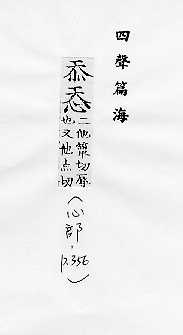 四聲篇海
忝
二他簟切辱
也又他点切
(心部，p.356)